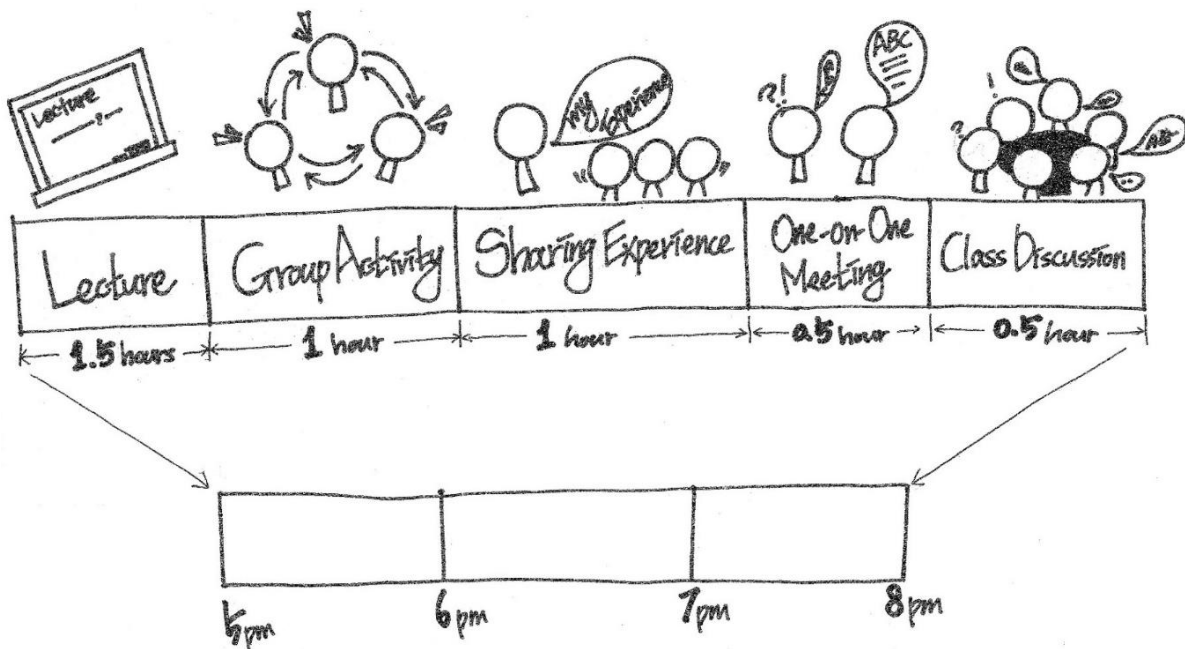 Lecture
?
my
Experience
?!
ABC
!
?
ABC
Lecture
Group Activity
Sharing Experience
One-on-One
Meeting
Class Discussion
1.5 hours
1 hour
1 hour
0.5 hour
0.5 hour
5pm
6pm
7pm
8pm